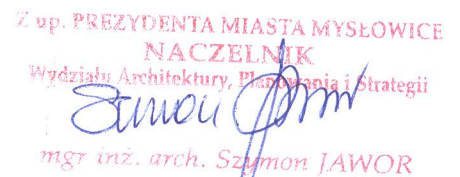 Z up. PREZYDENTA MIASTA MYSŁOWICE
NACZELNIK
Wydziału Architektury, Planowania i Strategii
mgr inż. arch. Szymon JAWOR